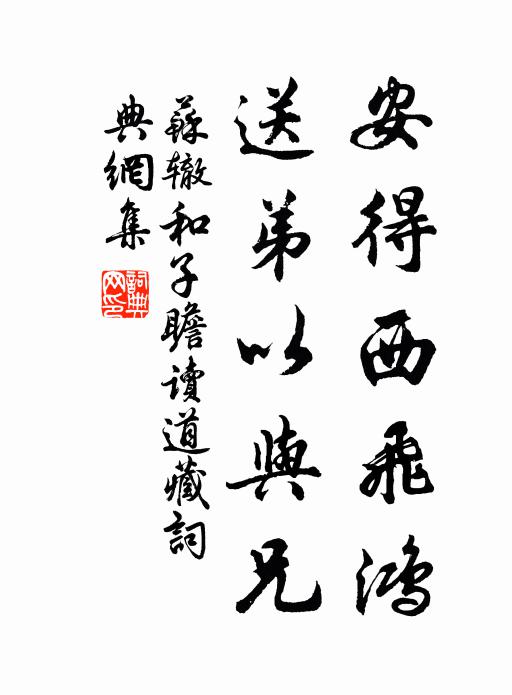 安得西飛鸿
送弟以與兄
蘇辙和子瞻讀道藏詞
典網集
詞典網印